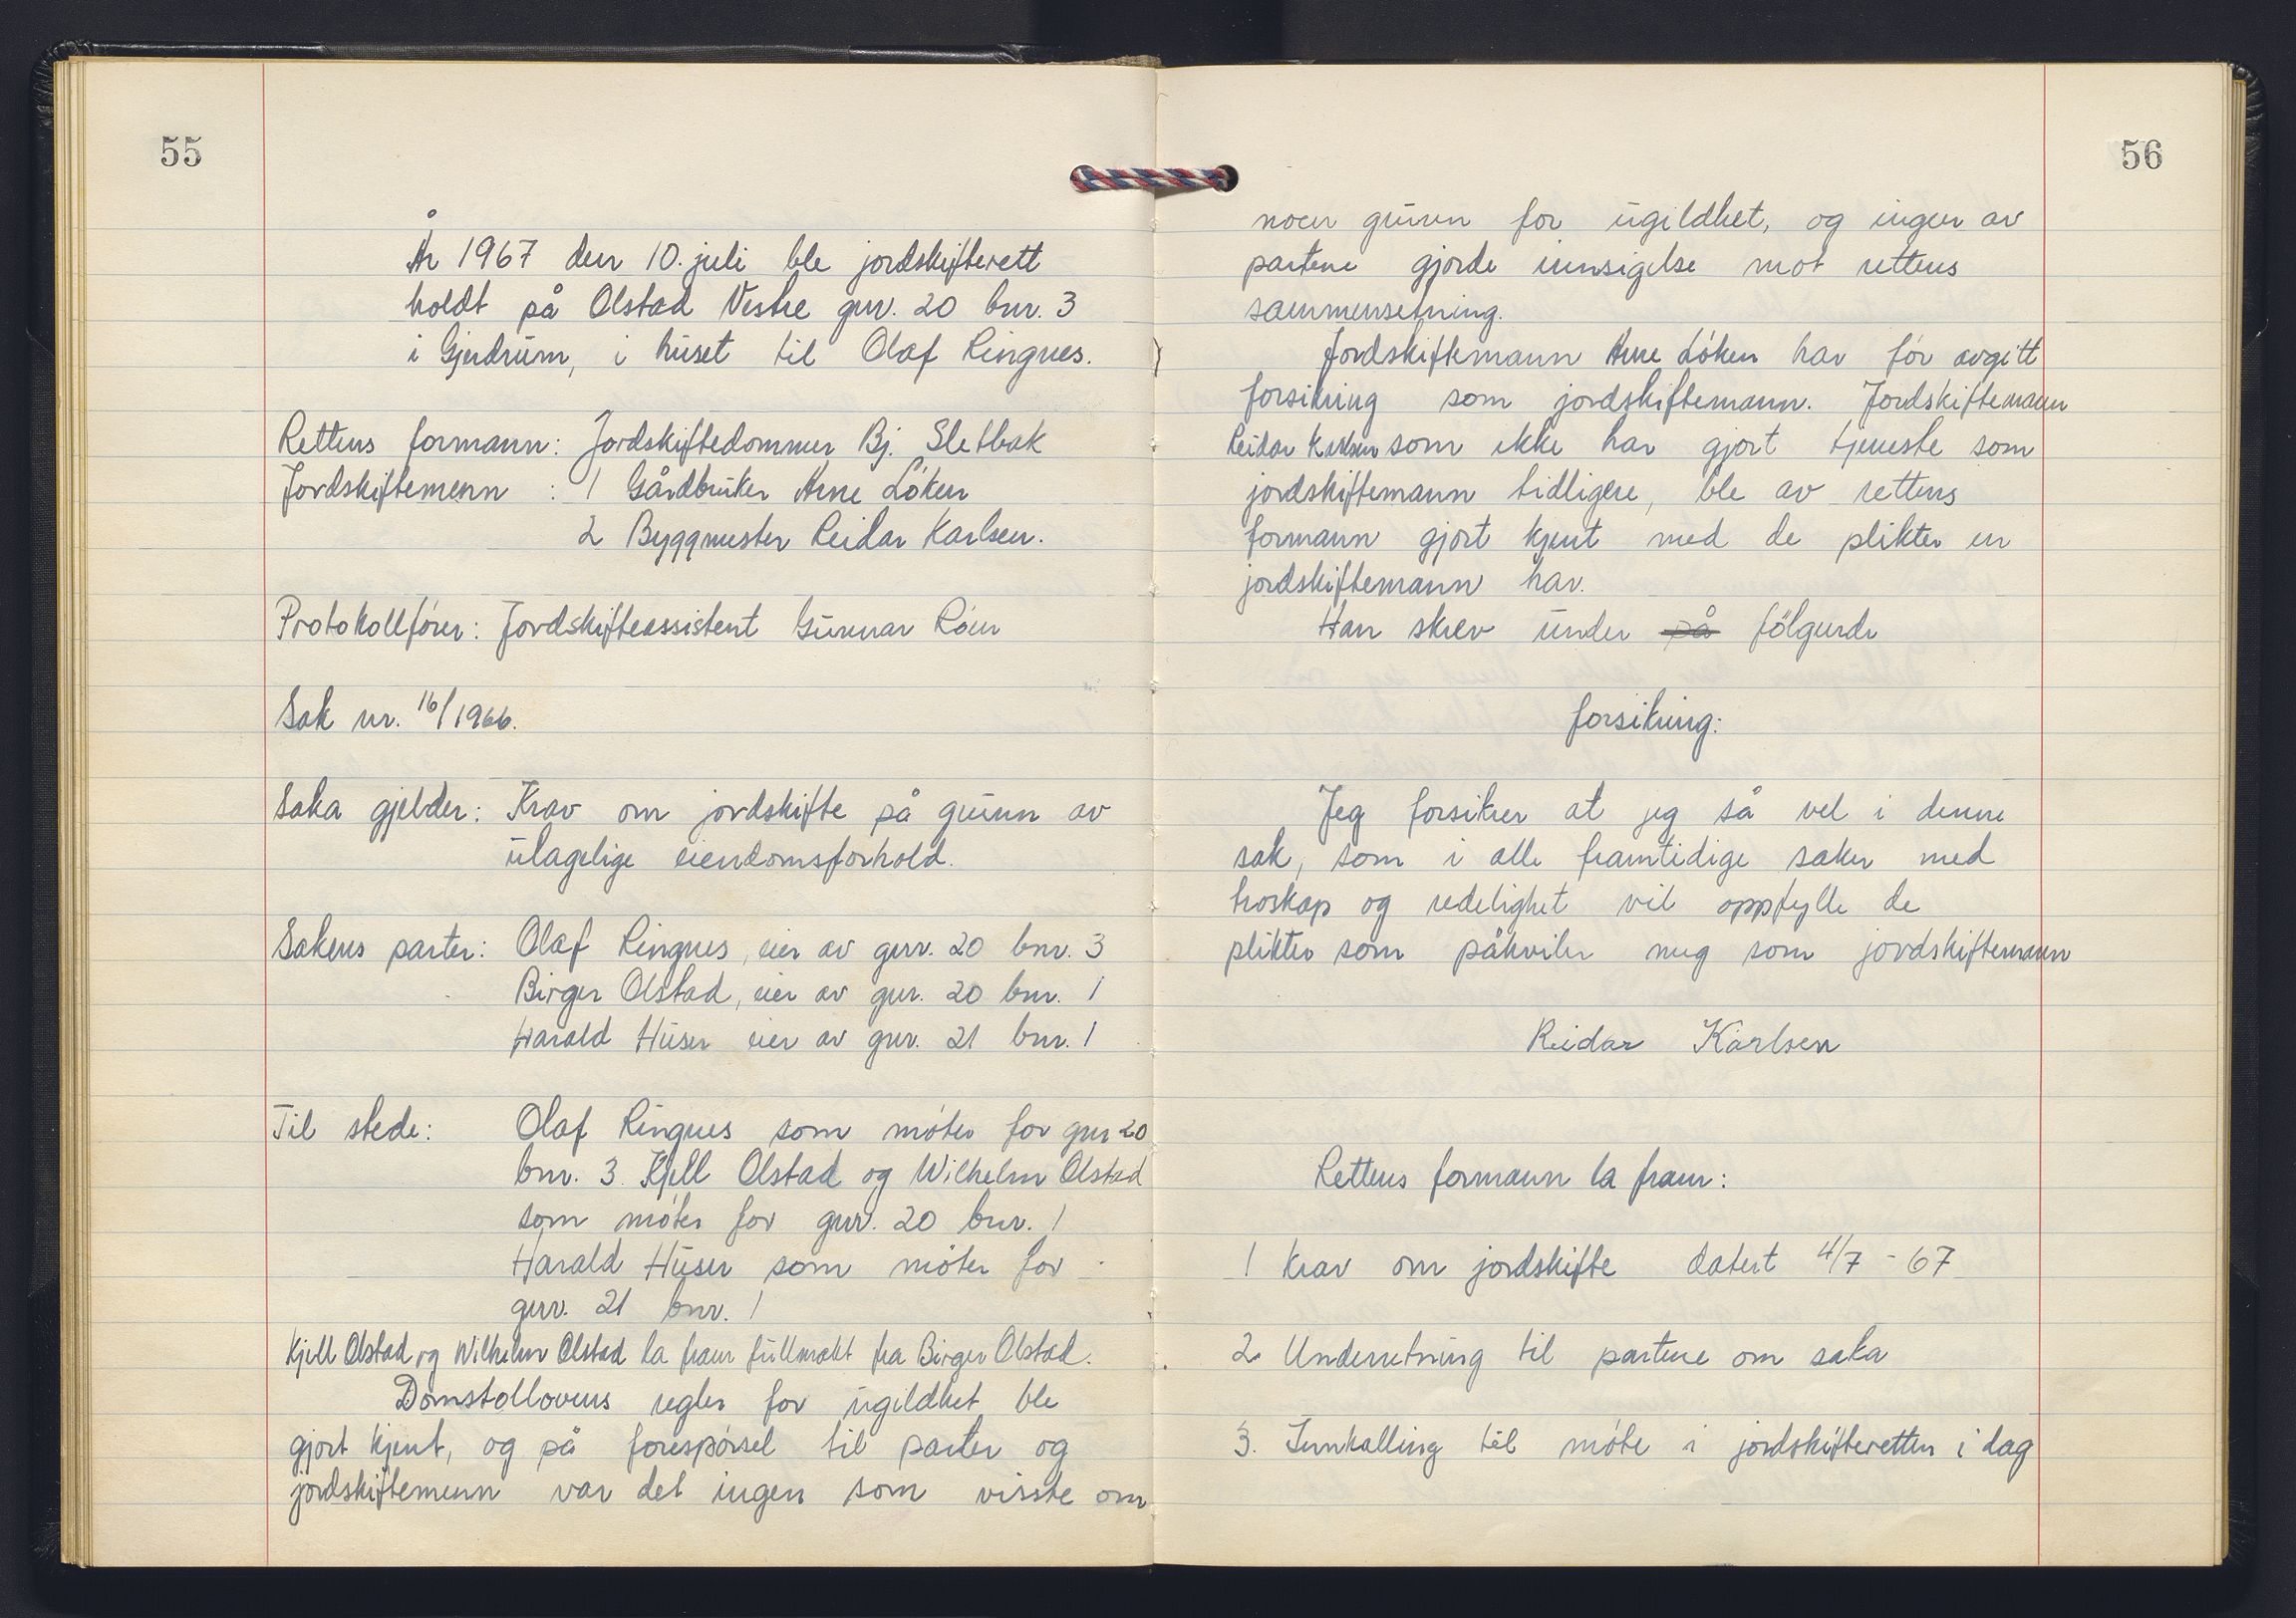 55
År 1967 den 10. juli ble jordskifterett
holdt på Olstad Vestre gnr. 20 bnr. 3
i Gjerdrum, i huset til Olaf Ringnes.
Rettens formann: Jordskiftedommer Bj. Sletbak
Jordskiftemenn : 1 Gårdbruker Arne Löken
2 Byggmester Reidar Karlsen.
Protokollfører: Jordskifteassistent Gunnar Röen
Sak nr. 16/1966.
Saka gjelder: Krav om jordskifte på grunn av
ulagelige eiendomsforhold.
Sakens parter: Olaf Ringnes, eier av gnr. 20 bnr. 3
Birger Olstad, eier av gnr. 20 bnr. 1
Harald Huser eier av gnr. 21 bnr. 1
Til stede: Olaf Ringnes som möter for gnr 20
bnr. 3. Kjell Olstad og Wilhelm Olstad
som möter for gnr. 20 bnr. 1
Harald Huser som möter for
gnr. 21 bnr. 1
Kjell Olstad og Wilhelm Olstad la fram fullmakt fra Birger Olstad.
Domstollovens regler for ugildhet ble
gjort kjent, og på forespørsel til parter og
jordskiftemenn var det ingen som visste om
56
noen grunn for ugildhet, og ingen av
partene gjorde innsigelse mot rettens
sammensetning.
Jordskiftemann Arne Löken har för avgitt
forsikring som jordskiftemann. Jordskiftemann
Reidar Karlsen som ikke har gjort tjeneste som
jordskiftemann tidligere, ble av rettens
formann gjort kjent med de plikter en
jordskiftemann har.
Han skrev under på fölgende
forsikring:
Jeg forsikrer at jeg så vel i denne
sak, som i alle framtidige saker med
troskap og redelighet vil oppfylle de
plikter som påkviler meg som jordskiftemann
Reidar Karlsen
Rettens formann la fram:
1 Krav om jordskifte datert 4/7 - 67
2 Underretning til partene om saka
3. Innkalling til möte i jordskifteretten i dag